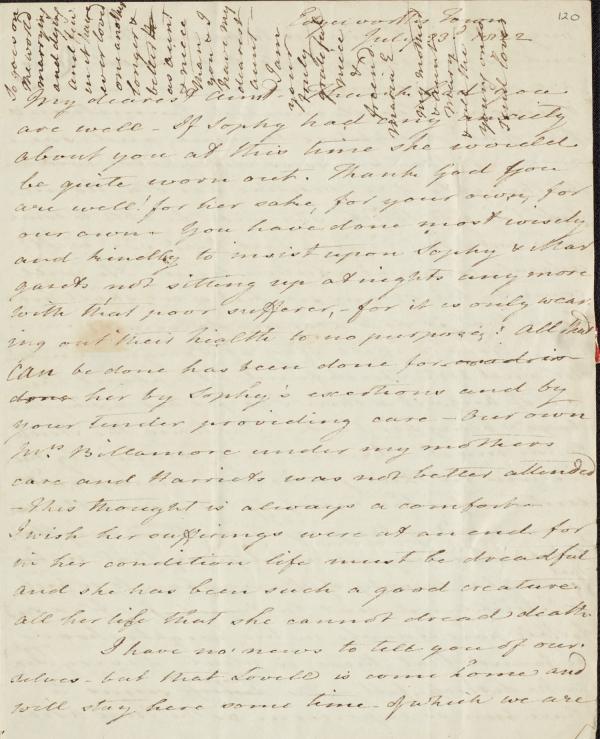 120
Edgeworth's Town
July 23d 1822
My dearest Aunt Thank God you
are well - If Sophy had any anxiety
about you at this time she would
be quite worn out. Thank God you
are well! for her sake, for your own, for
our own - You have done most wisely
and kindly to insist upon Sophy & Mar
garets not sitting up at nights any more
with that poor sufferer, - for it is only wear
ing out their health to no purpose! All that
can be done has been done for and is
done her by Sophy's exertions and by
your tender providing care - Our own
Mrs Billamore under my mothers
care and Harriets was not better attended
- This thought is always a comfort -
I wish her sufferings were at an end for
in her condition life must be dreadful
and she has been such a good creature
all her life that she cannot dread death
I have no news to tell you of our
selves - but that Lovell is come home and
will stay here some time - of which we are
To go on
the world
marrying
and dying
and in
it have
ever loved
one another
longer &
better
as aunt
& niece
than you & I
have my
dearest
aunt
I am
your
truly
grateful
niece
&
friend
Maria E
my mother
& aunt
Mary
& all the
young ones
send love